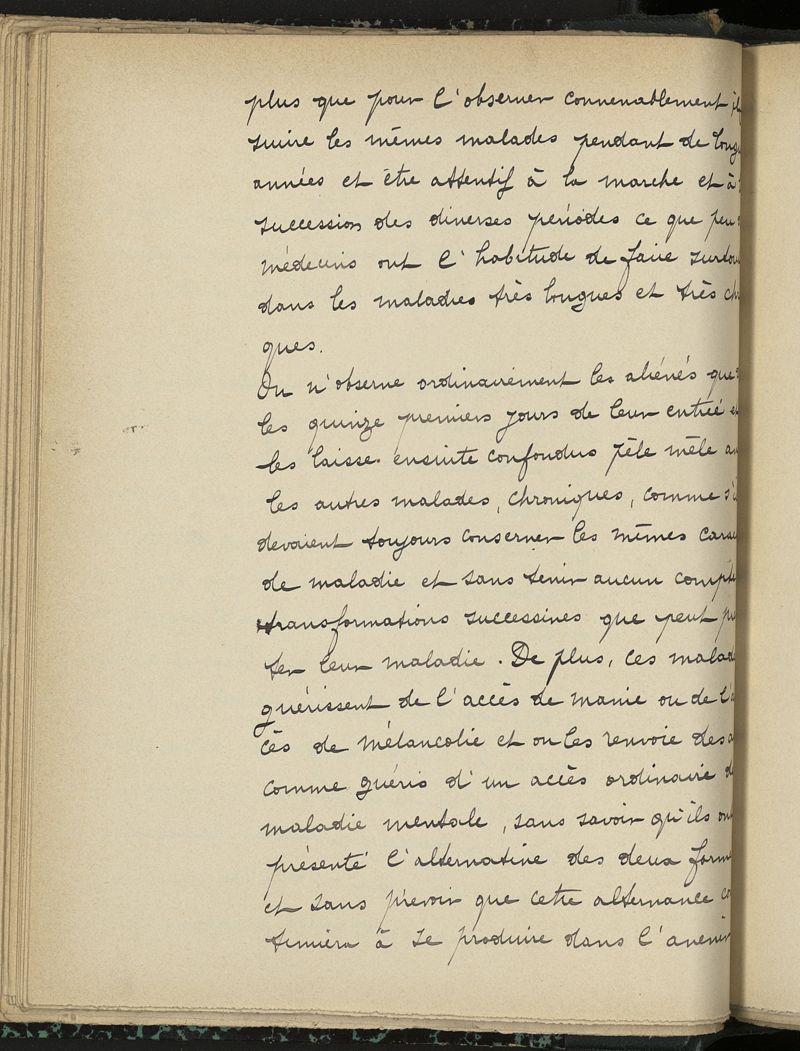 plus que pour l'observer convenablement il
suivre les mêmes malades pendant de long
années et être attentif à la marche et à
succession des diverses périodes ce que peu
médecins ont l'habitude de faire surtou
dans les maladies très longues et très ch
ques.
On n'observe ordinairement les aliénés que
les quinze premiers jours de leur entrée e
les laisse ensuite confondus pêle mêle a
les autres malades, chroniques, comme s'i
devaient toujours conserver les mêmes cara
de maladie et sans tenir aucun compte
transformations successives que peut p
ter leur maladie. De plus, ces malad
guérissent de l'accès de manie ou de l'a
cès de mélancolie et on les renvoie des a
comme guéris d'un accès ordinaire d
maladie mentale, sans savoir qu'ils on
présenté l'alternative des deux forme
et sans prévoir que cette alternance co
tinuera à se produire dans l'avenir